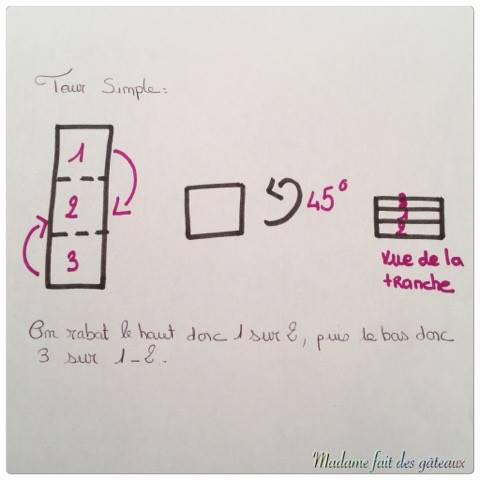 Tour Simple:
1
2
3
45°
3
1
2
vue de la
tranche
On rabat le haut donc 1 sur 2, puis le bas donc
3 sur 1-2.
Madame fait des gâteaux